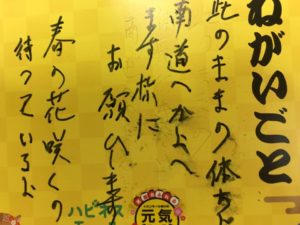 ねがいごと
此のままの体ちよ
南道へかよへ
ます様に
お願ひします
春の花咲くの
待つているよ
ハピネス
元気